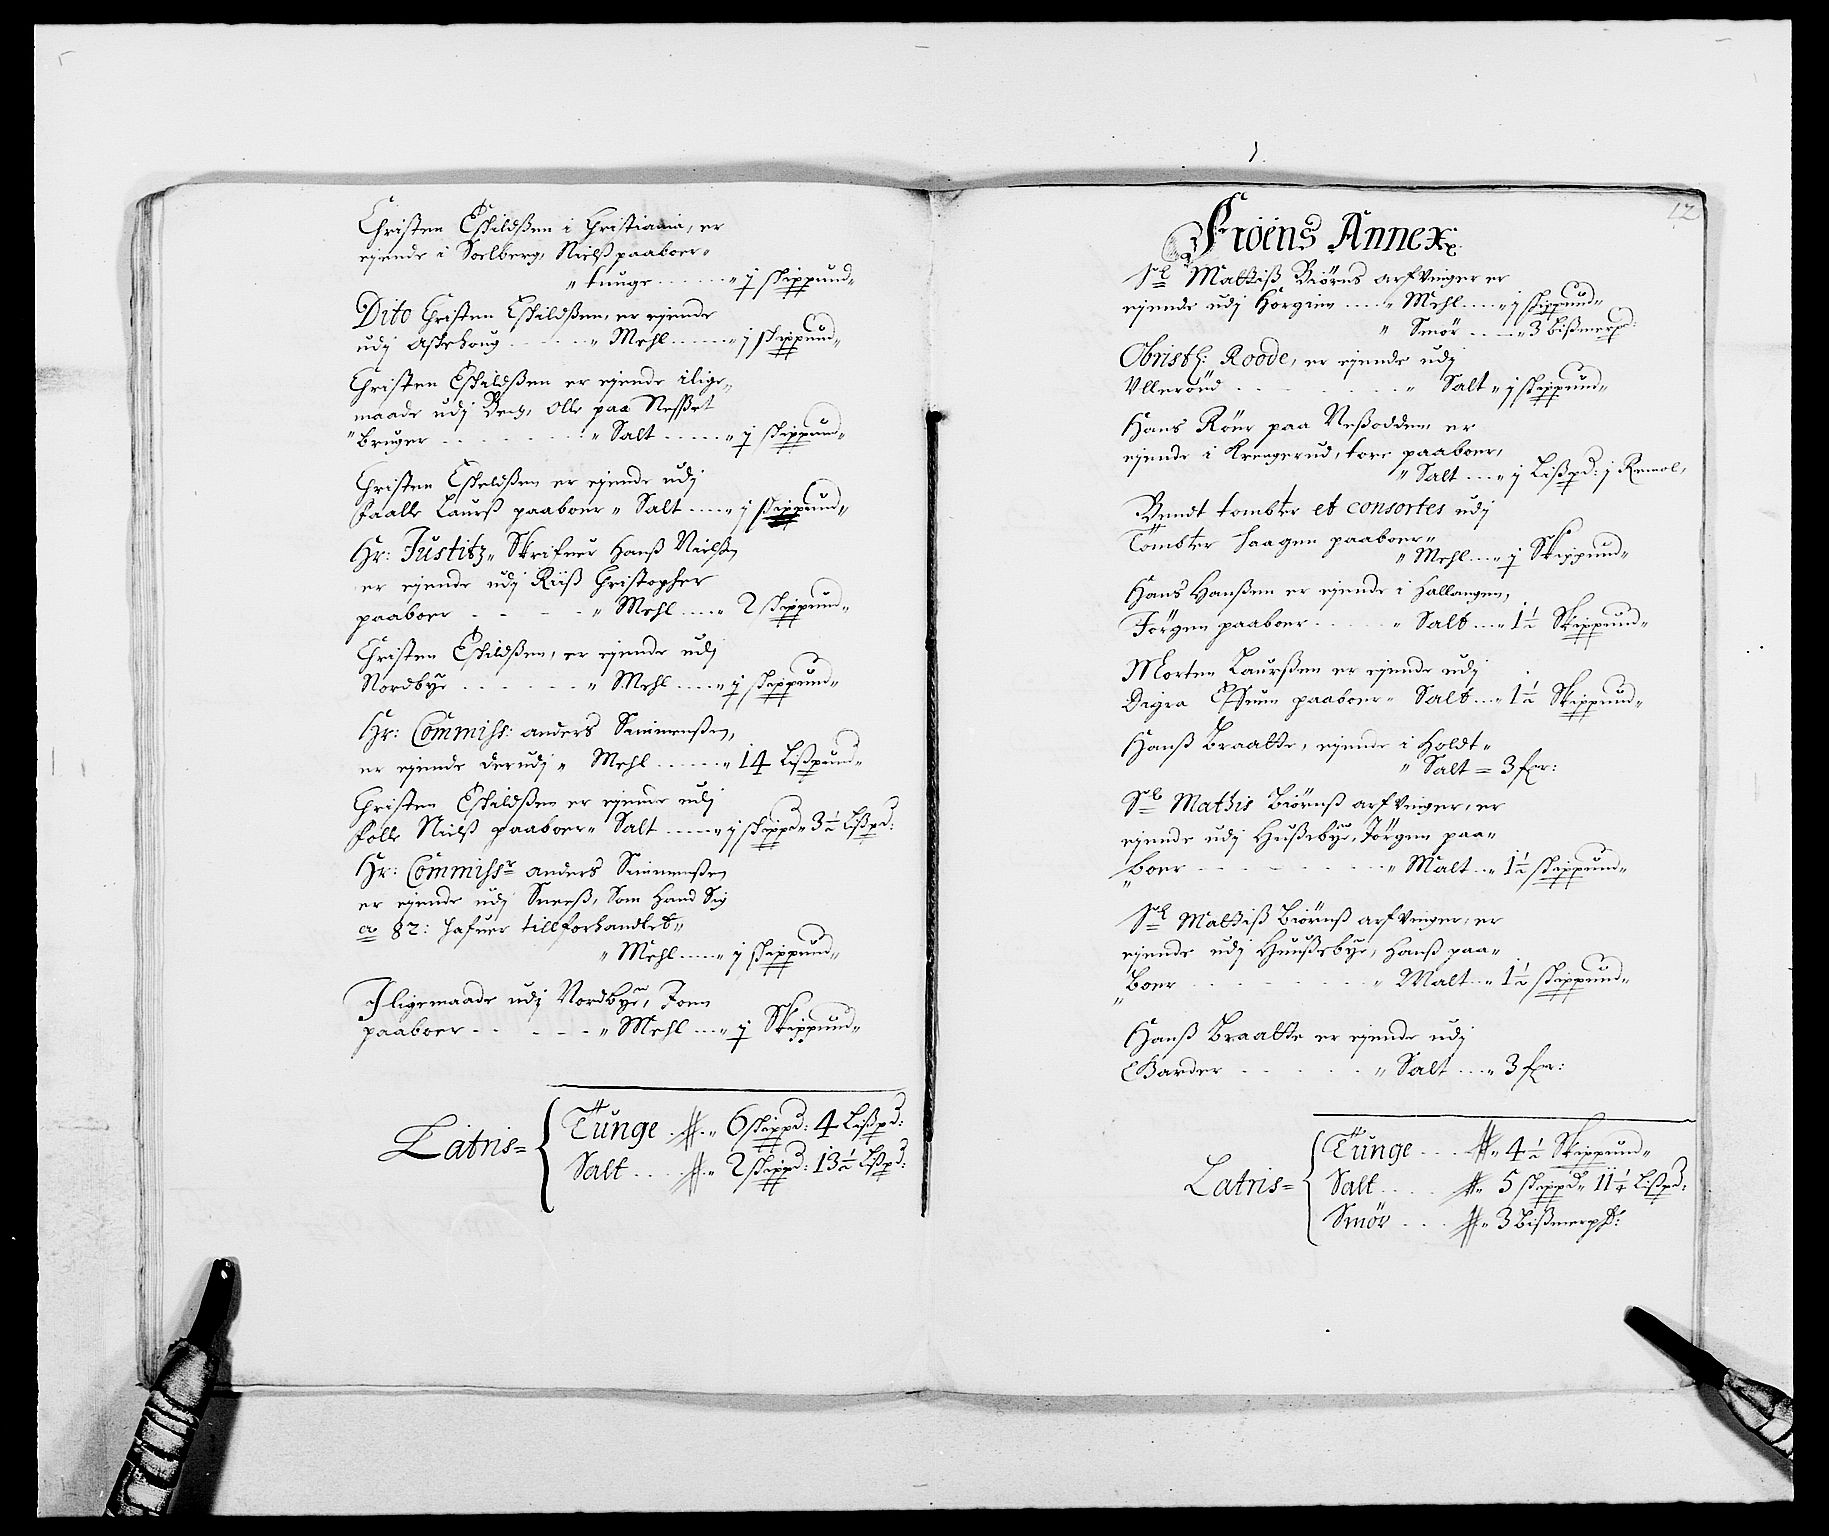 Christen Eskildßen i Christiania, er
ejende i Soelberg, Nielß paaboer„
„ tunge ...... „ j skippund„
Dito Christen Eskildßen, er ejende
udj Askehoug ..... „ Mehl ..... „ j skippund„
Christen Eskildßen er ejende ilige„
maade udj Berg, Olle paa Neßet
„ bruger ....... „ Salt ..... „ j skippund„
Christen Eskeldßen er ejende udj
Faalle Laurß paaboer „ Salt .... „ j skippund„
Hr: Justitz„ Skrifuer Hanß Nielß„
er ejende udj Riiß Christopher
paaboer - - - - „ Mehl .... „ 2 skippund„
Christen Eskildßen, er ejende udj
Nordbye ...... „ Mehl .... „ j skippund„
Hr: Commiss: anders Simmenßen,
er ejende derudj „ Mehl ..... „ 14 Lißpund„
Christen Eskildßen er ejende udj
Folle Nielß paaboer „ Salt .... „ j skippd „ 3½ Lißpd:
Hr: Commissr anders Simmenßen
er ejende udj Sneeß, Som hand Sig
ao 82: hafuer tillforhandlet„
„ Mehl .... „ j skippund„
Iligemaade udj Nordbye, Jonn
paaboer - - - - „ Mehl ... „ j Skippund„
Latris = Tunge .. „ 6 skippd: 4 Lißpd:
Salt .... „ 2 skippd: 13½ Lißpd:
12
Froens Annex
Sl Mattiß Biörns arfvinger er
ejende udj Horgine .... „ Mehl .... „ j skippund„
„ Smör .... „ 3 bißmerpd:
Obristl: Roode, er ejende udj
Ullerönd ....... „ Salt „ j skippund„
Hans Röer paa Neßodden er
ejende i Krengerud, tore paaboer,
„ Salt .... „ j Lißpd: j Remol,
Bendt tombter et consortes udj
Tömbter Haagen paaboer„
„ Mehl ... „ j Skippund„
Hans Hanßen er ejende i Hallangen,
Jörgen paaboer ..... „ Salt ... „ 1½ Skippund„
Morten Laurßen er ejende udj
Digra paaboer „ Salt ... „ 1½ Skippund„
Hanß Braatte, ejende i Holdt„
„ Salt = 3 fxr:
Sl Mathis Biörnß arfvinger, er
ejende udj Hußebye, Jörgen paa„
„ boer ....... „ Malt .. „ 1½ skippund„
Sl Mattiß Biörnß arfvinger, er
ejende udj Huußebye, Hanß paa„
„ Boer ....... „ Malt .. „ 1½ skippund„
Hanß Braatte er ejende udj
Garder ..... „ Salt ... „ 3 fxr:
Latris = Tunge ... „ 4½ Skippund„
Salt .... „ 5 skippd „ 11¼ Lißpd:
Smör ... „ 3 Bißmerpd: